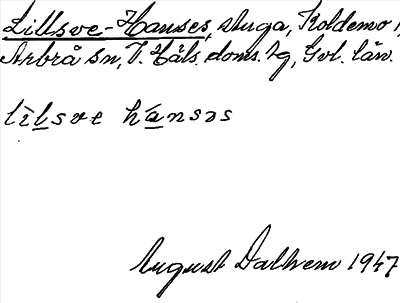 Lillsve-Hanses, stuga, Koldemo 1,
Arbrå sn, V. Häls. doms. tg, Gvl. län.
lilsve hansəs
August Dalhem 1947